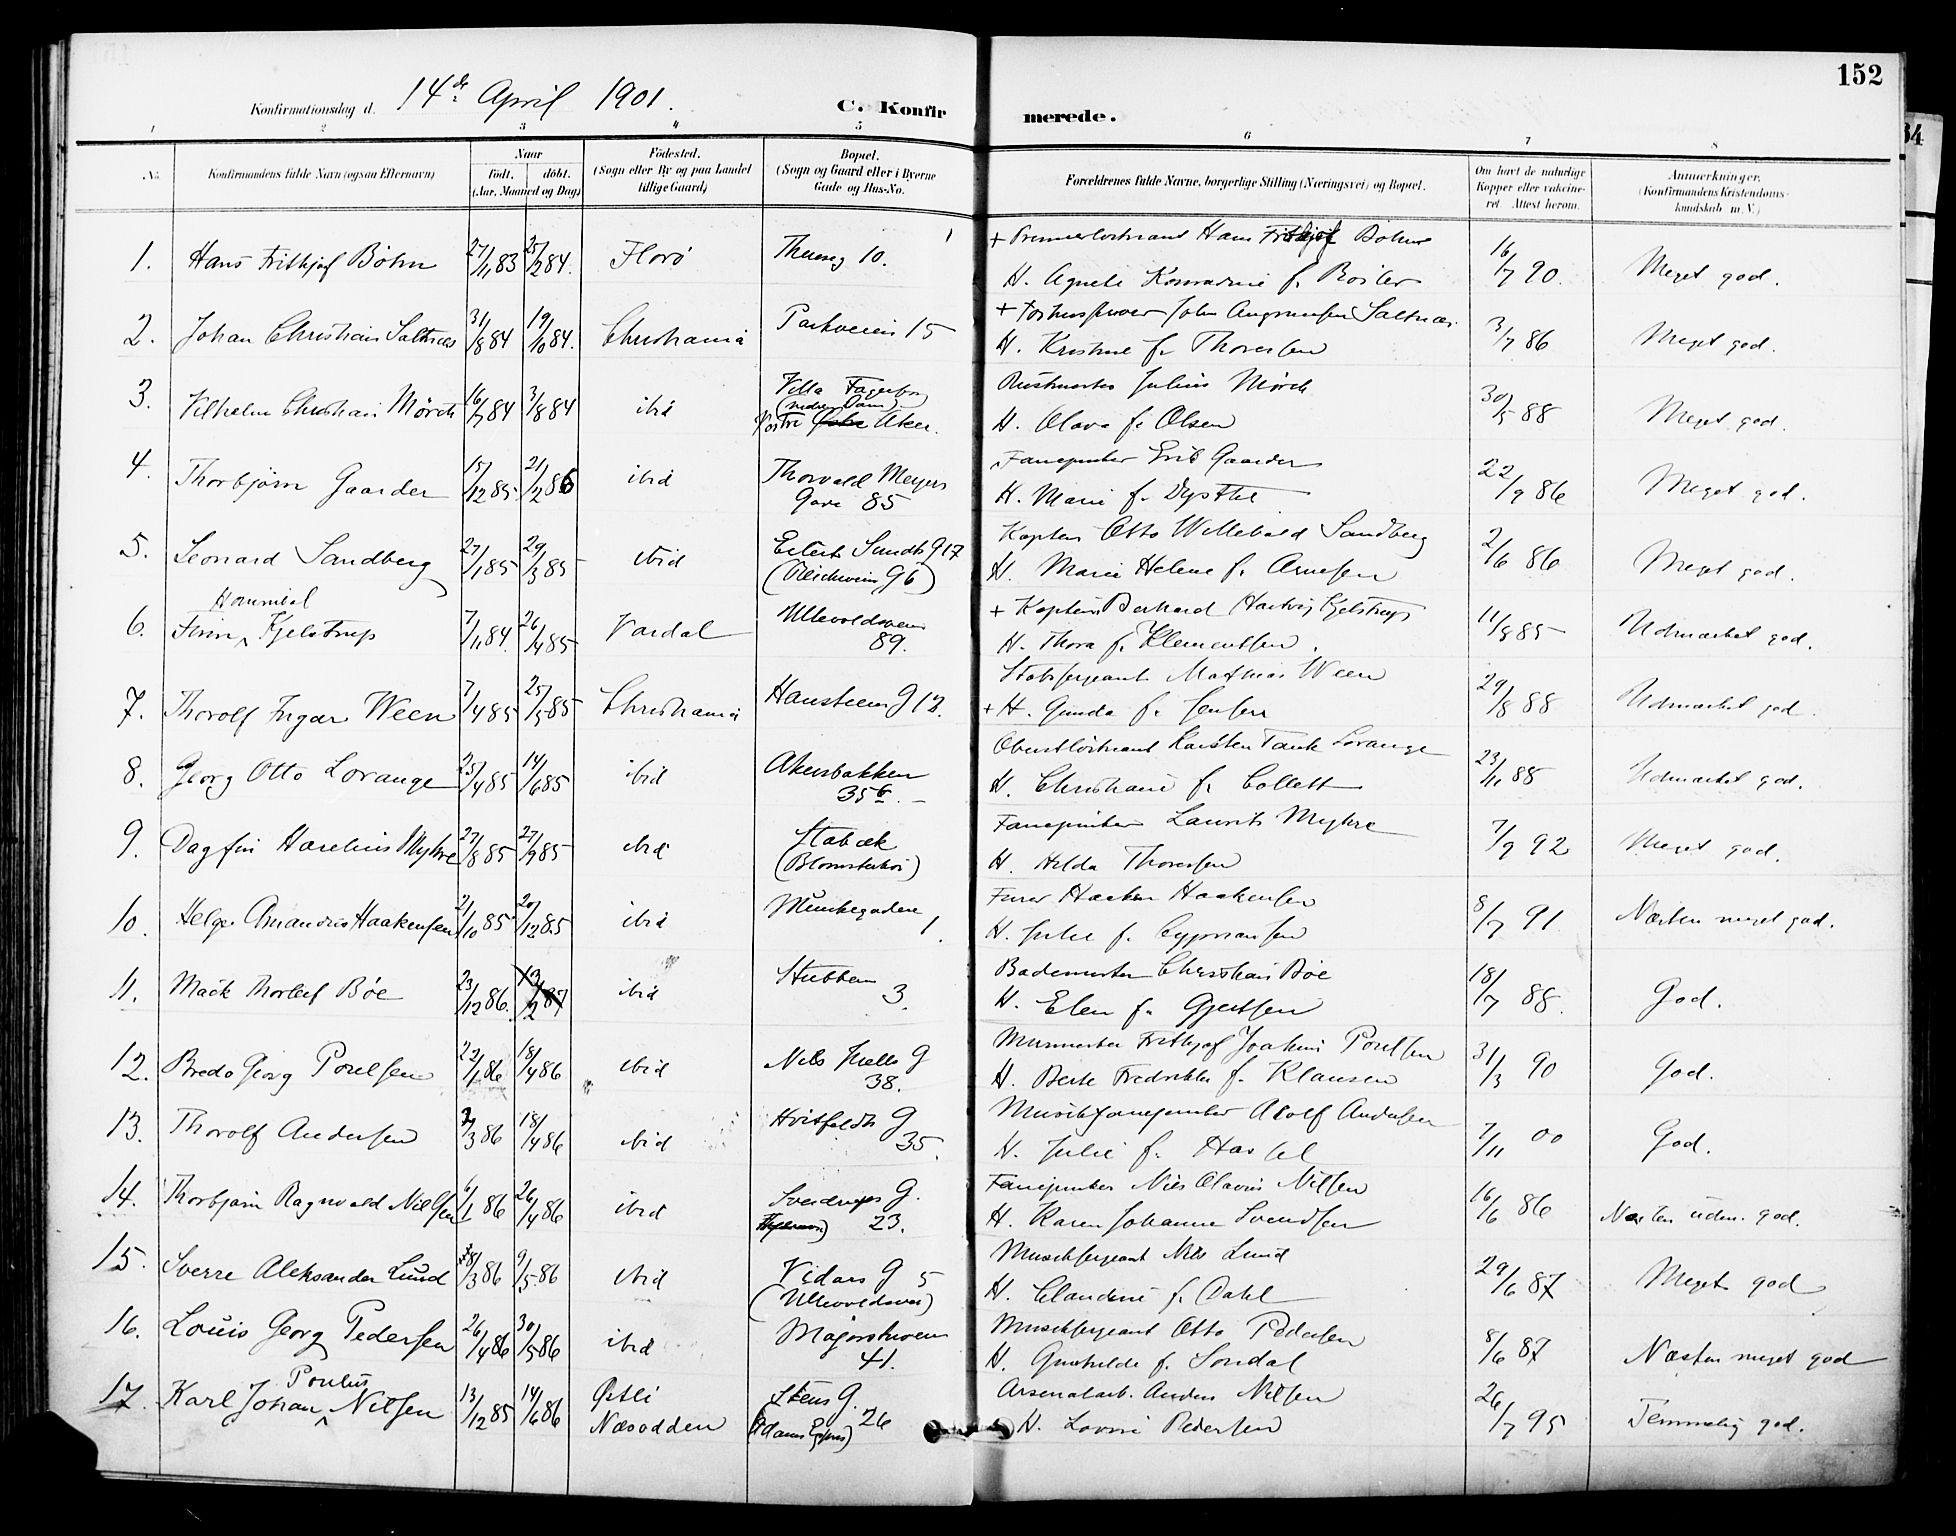 152
Konfirmationsdag d. 14de April 1901.
C. Konfirmerede.
1 2 3 4 5 6 7 8
No. Konfirmandens fulde Navn (ogsaa Efternavn)
Naar födt. döbt. (Aar, Maaned og Dag)
Födested. (Sogn eller By og paa Landet tillige Gaard)
Bopæl. (Sogn og Gaard eller i Byerne Gade og Hus-No.
Forældrenes fulde Navne, borgerlige Stilling (Næringsvei) og Bopæl.
Om havt de naturlige Kopper eller vakcineret. Attest herom.
Anmærkninger. (Konfirmandens Kristendomskundskab m. V.)
1. Hans Frithjof Böhn 27/11 83 25/2 84. Florö 10. + Premierlöitnant Hans Frithjof Böhn
H. Agnete f. 16/7 90. Meget god.
2. Johan Christian Saltnæs 31/8 84 19/10 84. Christiania Parkveien 15 + Saltnæs
H. Kristine f. Thoresen 3/7 86 Meget god.
3. Vilhelm Christian Mörch 16/7 84 3/8 84 ibid Villa Fagerbo
Vestre Aker. Rustmester Julius Mörch
H. Olava f. Olsen 30/5 88 Meget god.
4. Thorbjörn Gaarder 15/12 85. 21/2 86 ibid Thorvald Meyers
Gade 85 Fanejunker Erik Gaarder
H. Marie f. Dysthe 22/9 86 Meget god.
5. Leonard Sandberg 27/1 85 29/3 85 ibid Eilert Sundts G 17
Kaptein Otto Willebald Sandberg
H. Marie Helene f. Arnesen 2/6 86 Meget god.
6. Finn Hannibal Kjelstrup 7/11 84. 26/4 85 Vardal Ullevoldsveien
89. + Kaptein Hartvig Kjelstrup
H. Thora f. Klementsen. 11/8 85 Udmærket god.
7. Thorolf Ingar Ween 7/4 85 25/5 85 Christiania Hansteens G 12. Stabssergeant Mathias Ween
+ H. Gunda f. Jensen 29/8 88 Udmærket god.
8. Georg Otto Lorange 25/4 85 14/6 85 ibid Akersbakken
35 Oberstlöitnant Karsten Tank Lorange
H. Christiane f. Collett 23/11 88 Udmærket god.
9. Dagfin Myhre 27/8 85 27/9 85 ibid Stabæk
Fanejunker Laurits Myhre
H. Hilda Thoresen 7/9 92 Meget god.
10. Helge Amandus Haakensen 21/10 85 20/12 85 ibid Munkegaden
1. Furer Haaken Haakensen
H. Julie f. Cypriansen 8/7 91. Næsten meget god.
11. Thorleif Böe 23/12 86. 13/2 87 ibid Stubben
3. Bademester Christian Böe
H. Elen f. Gjertsen 18/7 88. God.
12. Breda Georg Poulsen 22/1 86 18/4 86 ibid Niels Juels G
38. Murmester Frithjof Joakim Poulsen
H. Fredrikke f. Klausen 31/3 90 God.
13. Thorolf Andersen 2/3 86 18/4 86 ibid Hvitfeldts G
35. Musikfanejunker Adolf Andersen
H. Julie f. Hassel 7/11 00 God.
14. Thorbjörn Ragnvald Nilsen 6/1 86 26/4 86 ibid Sverdrups G.
23. Fanejunker Nils Olavus Nilsen
H. Karen Johanne Svendsen 16/6 86 Næsten udm. god.
15. Sverre Aleksander Lund 18/3 86 9/5 86 ibid Vidars G 5
(Ullevoldsvei) Musiksergeant Nils Lund
H. Claudine f. Dahl 29/6 87 Meget god
16. Louis Georg Pedersen 26/4 86 30/5 86 ibid Majorstuveien
41. Musiksergeant Otto Pedersen
H. Gunhilde f. Sondal 8/6 87 Næsten meget god
17. Karl Johan Poulus Nilsen 13/12 85 14/6 86 Østli
Næsodden Steens G.
26 Arsenalarb. Anders Nilsen
H. Lovise Pedersen 26/7 95 Temmelig god.